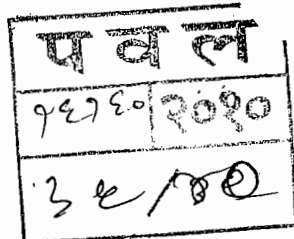 पवल
१६१६० २०१०
३६/७२